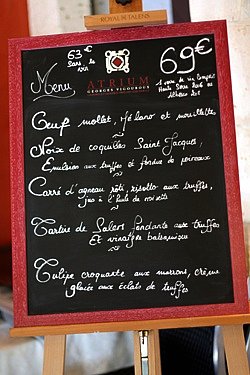 ROYAL TALENS
63 €
Sans le
vin
69€
Menu
ATRIUM
GEORGES VIGOUROUX
1 verre de vin compris
Oeuf mollet, Mélano et mouillettes
Noix de coquilles Saint Jacques,
Emulsion aux truffes et fondue de poireaux
Carré d'agneau rôti, risotto aux truffes,
jus à l'huile de noisette
Tartare de Salers fondante aux truffes
Et vinaigre balsamique
Tulipe croquante aux marrons, crème
glacée aux éclats de truffes